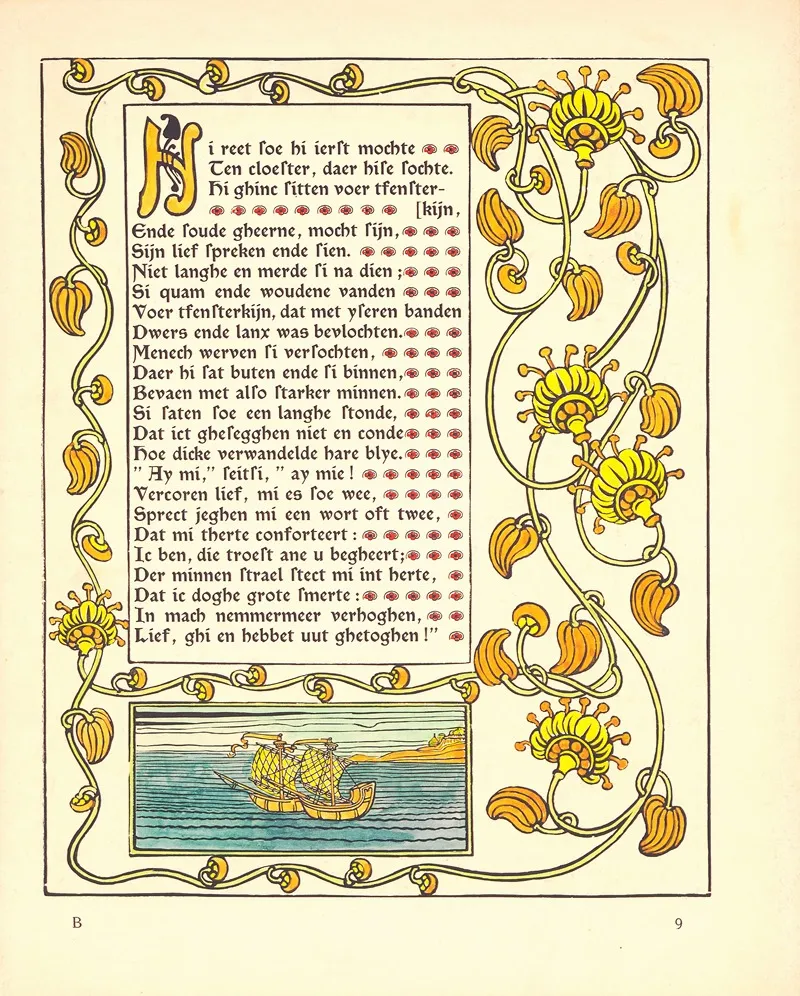 Hi reet soe hi ierst mochte
Ten cloester, daer hise sochte.
Hi ghinc sitten voer tfenster-
[kijn,
Ende soude gheerne, mocht sijn,
Sijn lief spreken ende sien.
Niet langhe en merde si na dien ;
Si quam ende woudene vanden
Voer tfensterkijn, dat met yseren banden
Dwers ende lanx was bevlochten.
Menech werven si versochten,
Daer hi sat buten ende si binnen,
Bevaen met also starker minnen.
Si saten soe een langhe stonde,
Dat ict ghesegghen niet en conde
Hoe dicke verwandelde hare blye.
” Ay mi,” seitsi, ” ay mie !
Vercoren lief, mi es soe wee,
Sprect jeghen mi een wort oft twee,
Dat mi therte conforteert :
Ic ben, die troest ane u begheert;
Der minnen strael stect mi int herte,
Dat ic doghe grote smerte :
In mach nemmermeer verhoghen,
Lief, ghi en hebbet uut ghetoghen !”
B 9